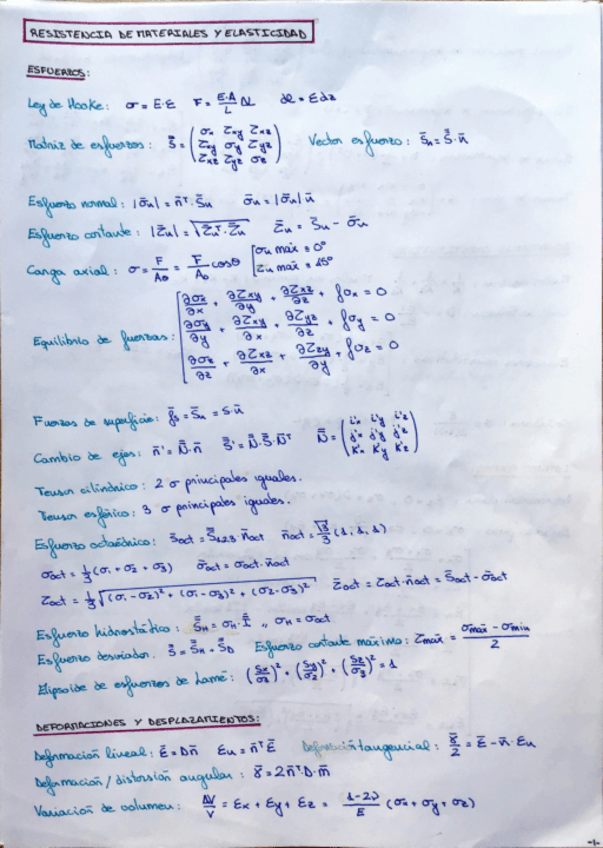 RESISTENCIA DE MATERIALES Y ELASTICIDAD
ESFUERZOS:
Ley de Hooke: σ = E·ε F = E·A/L ΔL dl = εdz
Matriz de esfuerzos: S̿ = (σx τxy τxz / τxy σy τyz / τxz τyz σz) Vector esfuerzo: S̄n = S̿·n̄
Esfuerzo normal: |σ̄n| = n̄ᵀ·S̄n σ̄n = |σ̄n| n̄
Esfuerzo cortante: |τ̄n| = √(τ̄nᵀ·τ̄n) τ̄n = S̄n - σ̄n
Carga axial: σ = F/Aθ = F/A₀ cosθ [σn máx = 0° / τn máx = 45°
Equilibrio de fuerzas: [∂σx/∂x + ∂τxy/∂y + ∂τxz/∂z + fσx = 0
∂σy/∂y + ∂τxy/∂x + ∂τyz/∂z + fσy = 0
∂σz/∂z + ∂τxz/∂x + ∂τzy/∂y + fσz = 0
Fuerzas de superficie: f̄s = S̄n = S·n̄
Cambio de ejes: n̄' = N̿·n̄ S̿' = N̿·S̿·N̿ᵀ N̿ = (i'x i'y i'z / j'x j'y j'z / k'x k'y k'z)
Tensor cilíndrico: 2 σ principales iguales.
Tensor esférico: 3 σ principales iguales.
Esfuerzo octaédrico: S̄oct = S̿123·n̄oct n̄oct = √3/3 (1, 1, 1)
σoct = 1/3 (σ1 + σ2 + σ3) σ̄oct = σoct·n̄oct
τoct = 1/3 √((σ1-σ2)² + (σ1-σ3)² + (σ2-σ3)²) τ̄oct = τoct·n̄oct = S̄oct - σ̄oct
Esfuerzo hidrostático: S̿H = σH·I̿ ,, σH = σoct
Esfuerzo desviador: S̿ = S̿H + S̿D Esfuerzo cortante máximo: τmáx = (σmáx - σmin)/2
Elipsoide de esfuerzos de Lamé: (Sx/σ1)² + (Sy/σ2)² + (Sz/σ3)² = 1
DEFORMACIONES Y DESPLAZAMIENTOS:
Deformación lineal: ε̄ = D·n̄ εn = n̄ᵀε̄ Deformación tangencial: γ̄/2 = ε̄ - n̄·εn
Deformación/distorsión angular: γ̄ = 2n̄ᵀ·D·m̄
Variación de volumen: ΔV/V = εx + εy + εz = (1-2ν)/E (σx + σy + σz)
-1-